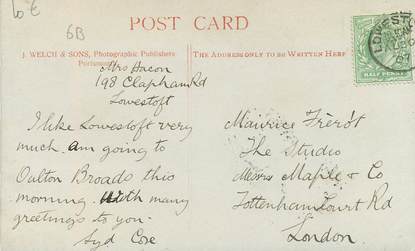 6B
POST CARD
J. WELCH & SONS, Photographic Publishers
Portsmouth
THE ADDRESS ONLY TO BE WRITTEN HERE
HALF PENNY
Mrs Hacon
198 Clapham Rd
Lowestoft
I like Lowestoft very
much am going to
Oulton Broads this
morning. With many
greetings to you.
Syd Coxe
Maurice Frérot
The Studio
Messrs Maple & Co
Tottenham Court Rd
London.